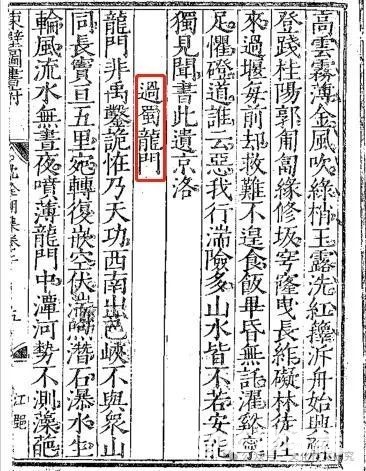 高雲霧薄金風吹綠梢玉露洗紅籜泝舟始興廨
登踐桂陽郭匍匐緣修坂穹窿曳長絙礙林徒往
來過堰每前却救難不遑飯畢昏無託濯谿寧
足懼磴道誰云惡我行湍險多山水皆不若安能
獨見聞書此遺京洛
過蜀龍門
龍門非禹鑿詭怪乃天功西南出巴峽不與衆山
同長竇亘五里宛轉復嵌空伏湍潛石瀑水生
輪風流水無晝夜噴薄龍門中潭河勢不測藻葩
東壁圖書府
期集卷二
五